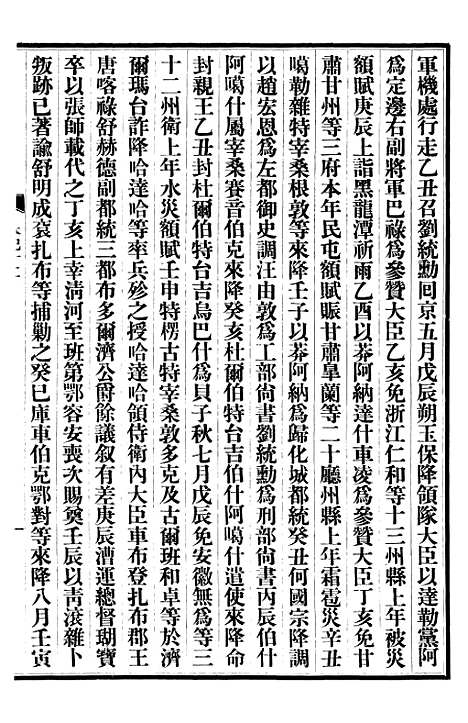 軍機處行走乙丑召劉統勳回京五月戊辰朔玉保降領隊大臣以達勒黨阿
為定邊右副將軍巴祿為參贊大臣乙亥免浙江仁和等十三州縣上年被災
額賦庚辰上詣黑龍潭祈雨乙酉以莽阿納達什車凌為參贊大臣丁亥免甘
肅甘州等三府本年民屯額賦賑甘肅皐蘭等二十廳州縣上年霜雹災辛丑
噶勒雜特宰桑根敦等來降壬子以莽阿納為歸化城都統癸丑何國宗降調
以趙宏恩為左都御史調汪由敦為工部尙書劉統勳為刑部尙書丙辰伯什
阿噶什屬宰桑賽音伯克來降癸亥杜爾伯特台吉伯什阿噶什遣使來降命
封親王乙丑封杜爾伯特台吉烏巴什為貝子秋七月戊辰免安徽無為等三
十二州衛上年水災額賦壬申特楞古特宰桑敦多克及古爾班和卓等於濟
爾瑪台詐降哈達哈等率兵殄之授哈達哈領侍衛內大臣車布登扎布郡王
唐喀祿舒赫德副都統三都布多爾濟公爵餘議敘有差庚辰漕運總督瑚寶
卒以張師載代之丁亥上幸淸河至班第鄂容安喪次賜奠壬辰以靑滾雜卜
叛跡已著諭舒明成袞扎布等捕勦之癸巳庫車伯克鄂對等來降八月壬寅